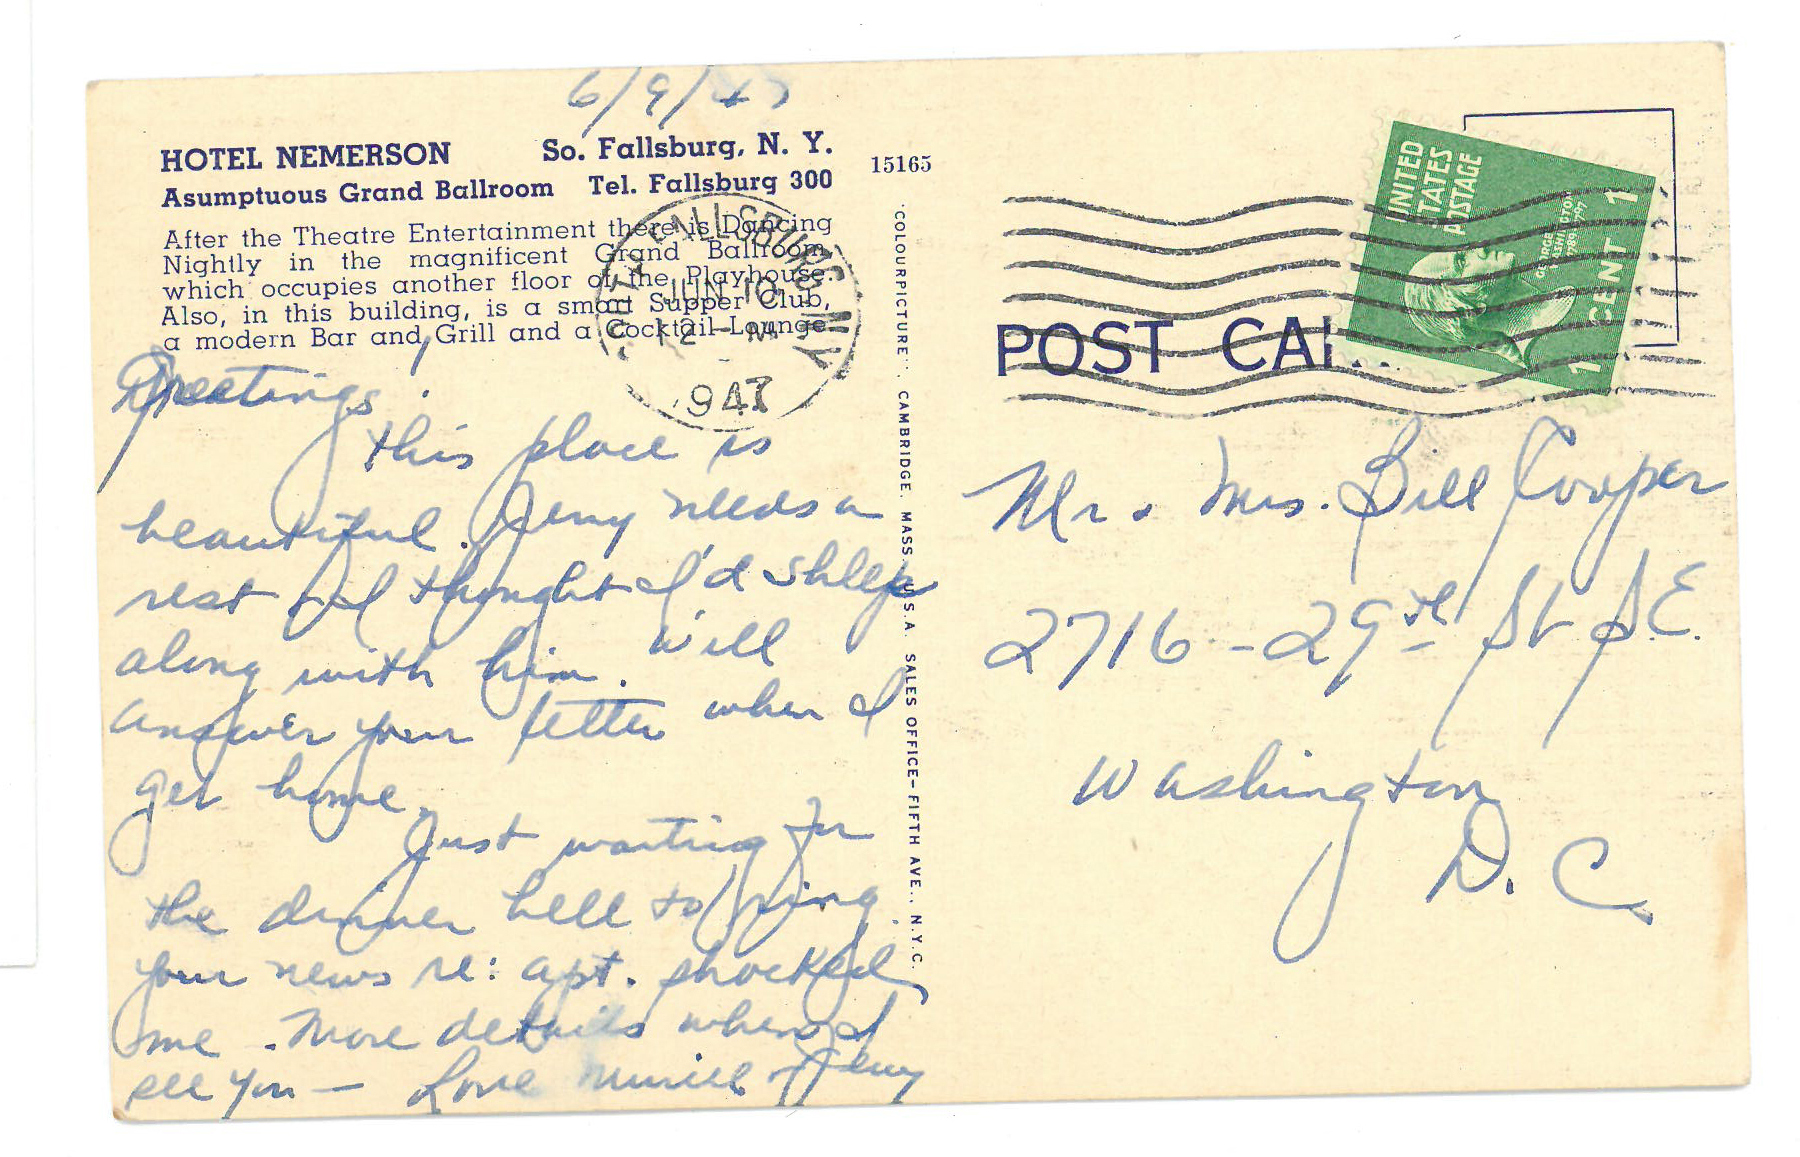 6/9/47
HOTEL NEMERSON So. Fallsburg, N. Y.
Asumptuous Grand Ballroom Tel. Fallsburg 300
After the Theatre Entertainment there is Dancing
Nightly in the magnificent Grand Ballroom,
which occupies another floor of the Playhouse.
Also, in this building, is a smart Supper Club,
a modern Bar and Grill and a Cocktail Lounge
15165
FALLSBURG N.Y.
JUN 10
12 - M
1947
Greetings!
this place is
beautiful. Jerry needs a
rest & I thought I'd shlep
along with him. Will
answer your letter when I
get home.
Just waiting for
the dinner bell to ring.
your news re: apt. shocked
me. More details when I
see you — Love Muriel & Jerry
COLOURPICTURE. CAMBRIDGE. MASS. U.S.A. SALES OFFICE—FIFTH AVE., N.Y.C.
UNITED
STATES
POSTAGE
GEORGE WASHINGTON
1789 1797
1 CENT 1
POST CA
Mr. Mrs. Bill Cooper
2716 - 29th St S.E.
Washington
D. C.